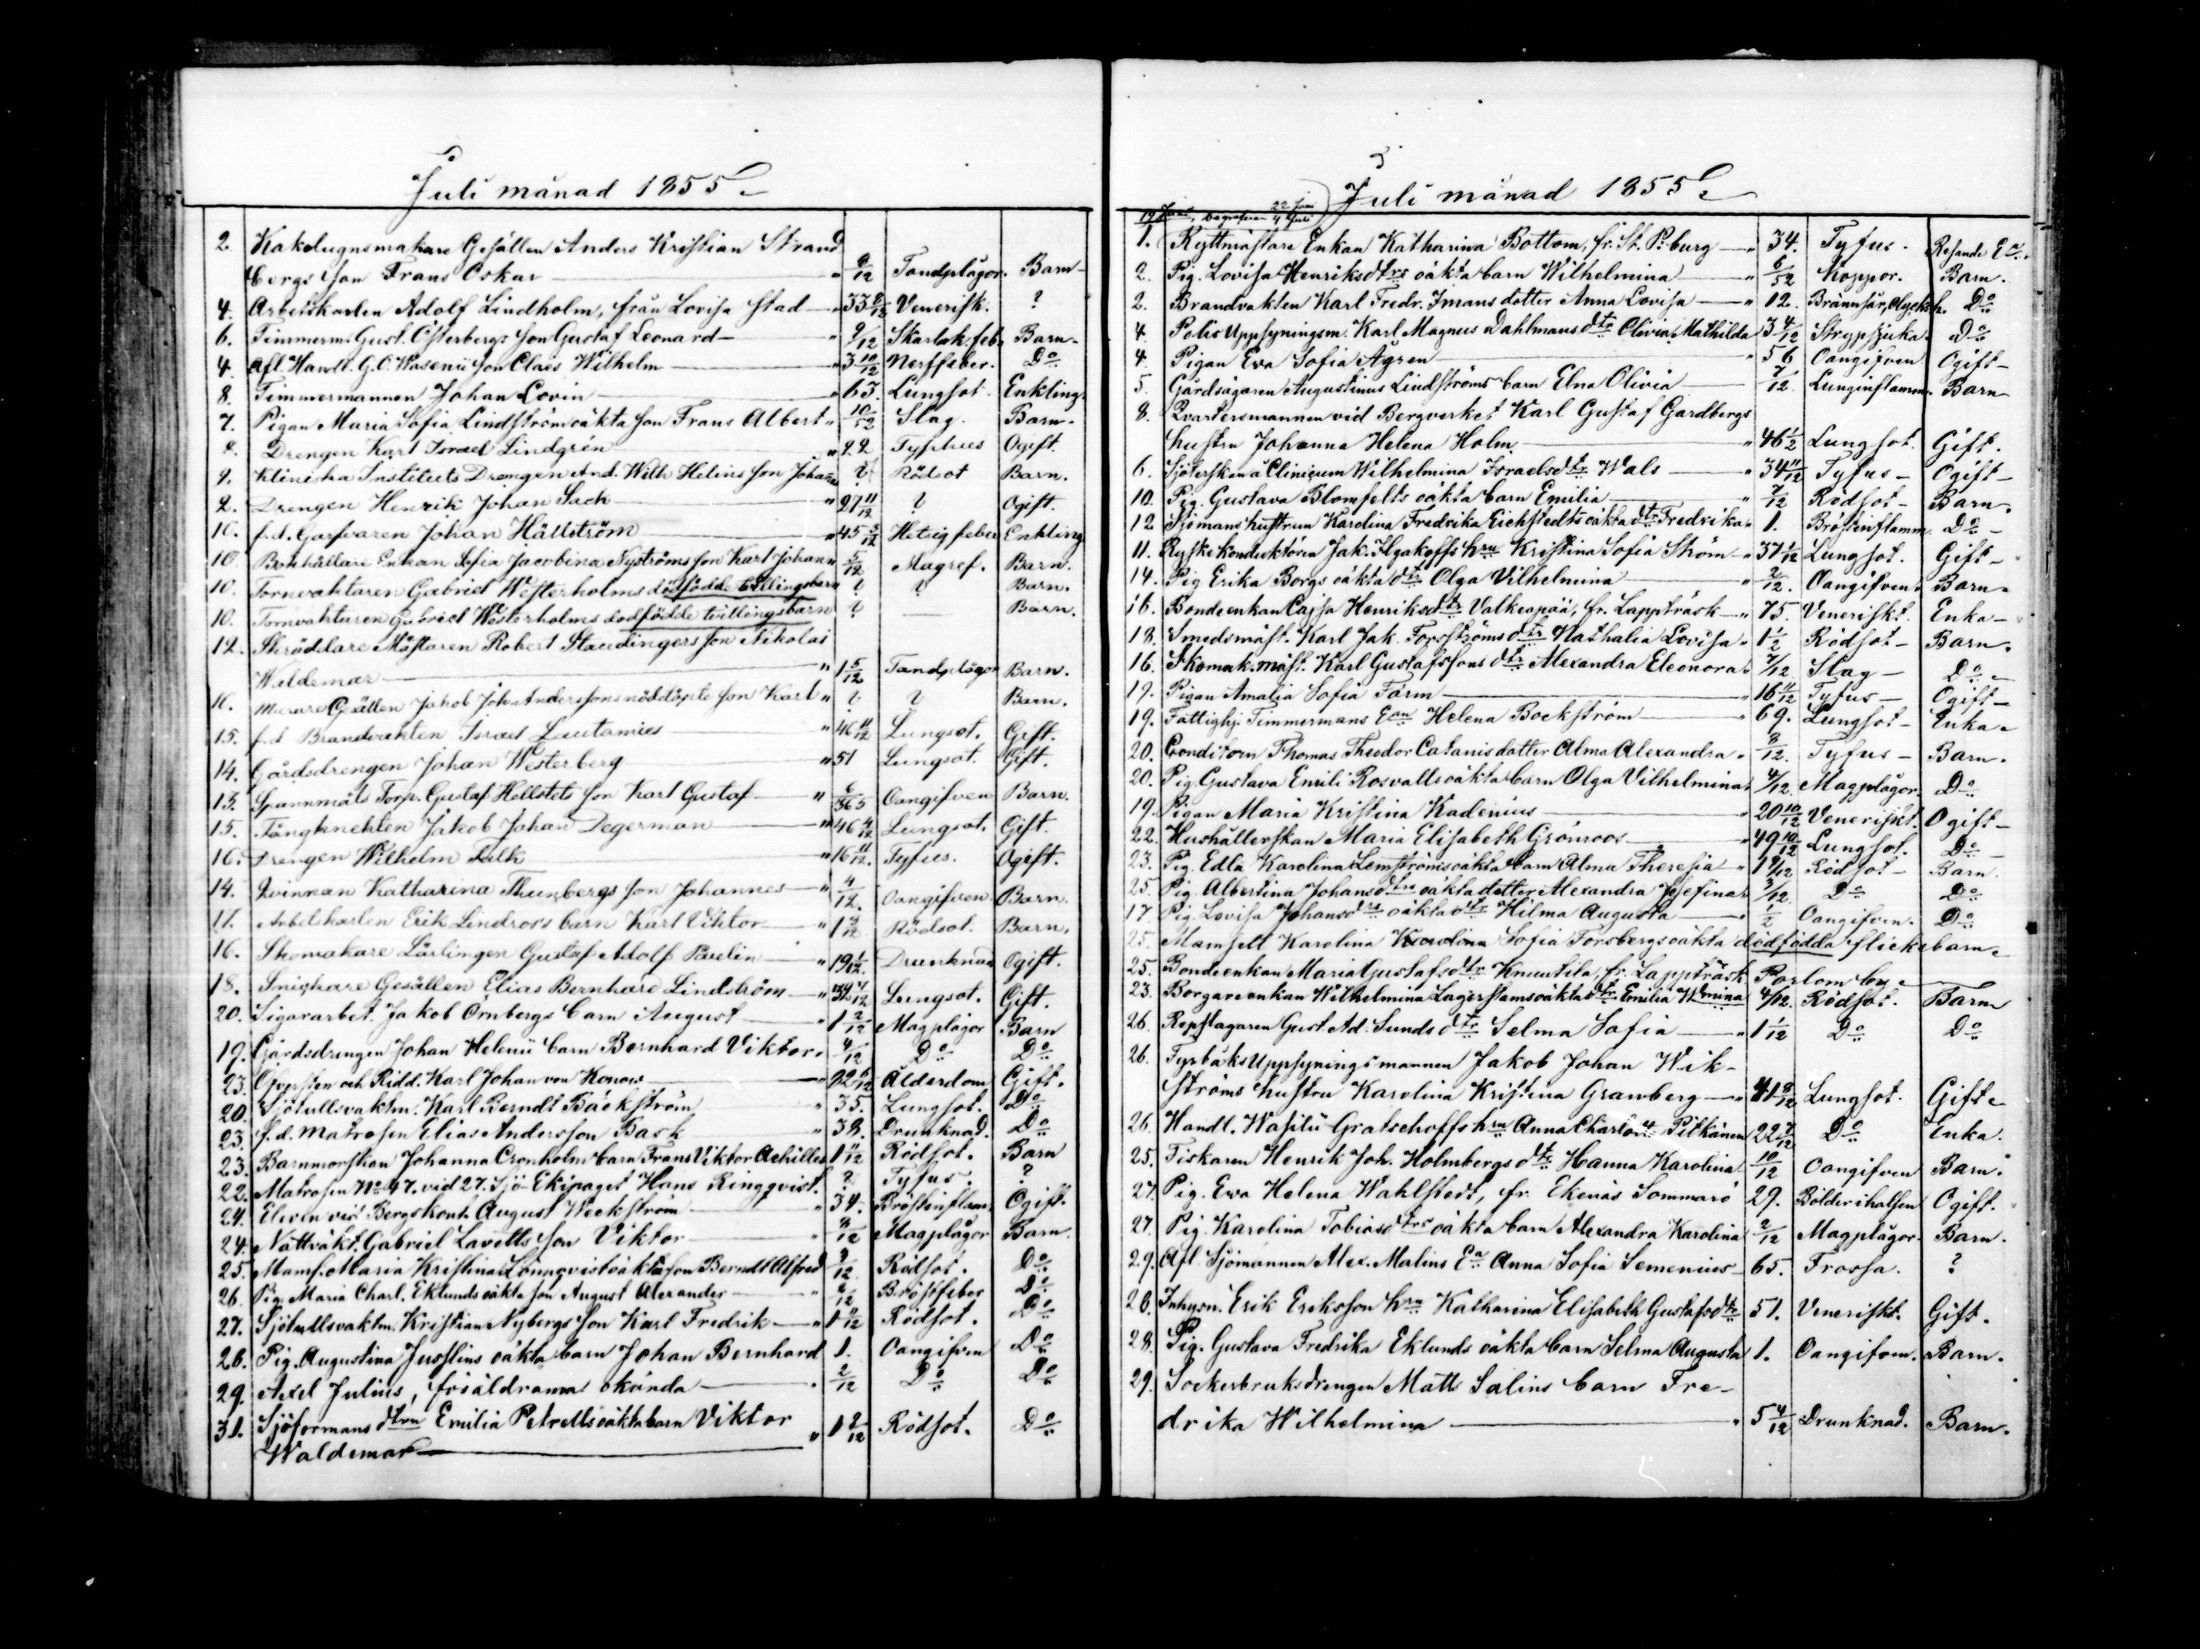 Juli månad 1855
2. Kakelugnsmakare Gesällen Anders Kristian Strand
bergs son Frans Oskar — " 9/12 Tandplågor. Barn
4. Arbetskarlen Adolf Lindholm, från Lovisa stad — " 33 Venerisk. ?
6. Timmerm. Gust. Österbergs son Gustaf Leonard — " 9/12 Skarlak. feb. Barn
4. Afl. Handl. G. O. Wasenii son Claes Wilhelm — " 3 10/12 Nerffeber. Do
8. Timmermannen Johan Lovin — " 63. Lungsot. Enkling.
7. Pigan Maria Sofia Lindströms oäkta son Frans Albert " 10/52 Slag. Barn.
Drengen Karl Israel Lindgrén " 22 Typhus Ogift.
9. Kliniska Instituts Drengen And. Wilh. Helins son Johan " ? Rödsot Barn.
Drengen Henrik Johan Sack — " 27 11/12 ? Ogift.
10. f.d. Garfvaren Johan Hällström — " 45 Hetsig feber Enkling
10. Bokhållare Enkan Sofia Jacobina Nyströms son Karl Johan " 5/12 Magref. Barn.
10. Tornvaktaren Gabriel Westerholms dödfödde tvillingsbarn ? ? Barn.
10. Tornvaktaren Gabriel Westerholms dödfödde tvillingsbarn ? — Barn.
12. Skräddare Mästaren Robert Staudingers son Nikolai
Woldemar — " 1 5/12 Tandplågor Barn.
Murare Gesällen Jakob Joh. Anderssons nöddöpte son Karl " ? ? Barn.
15. f.d. Brandvakten Israel Lautamies " 46 11/12 Lungsot. Gift.
14. Gårdsdrengen Johan Westerberg " 51 Lungsot. Gift.
13. Spannmåls Torp. Gustaf Hellstets son Karl Gustaf — " 6/365 Oangifven Barn.
15. Fångknekten Jakob Johan Degerman — " 46 4/12 Lungsot. Gift.
16. Drengen Wilhelm Falk — " 16 11/12. Tyfus. Ogift.
14. Qvinnan Katharina Thunbergs son Johannes — " 4/12. Oangifven Barn.
17. Arbetskarlen Erik Lindroos barn Karl Viktor — " 1 Rödsot. Barn.
16. Skomakare Lärlingen Gustaf Adolf Pavelin — " 19 1/12. Drunknad Ogift.
18. Snickare Gesällen Elias Bernhard Lindström — " Lungsot. Gift.
20. Sigararbet. Jakob Örnbergs barn August — " 1 2/12 Magplågor Barn
19. Gårdsdrengen Johan Helenii barn Bernhard Viktor. " 4/12 Do Do
23. Öfversten och Ridd. Karl Johan von Konow — " 82 Ålderdom Gift.
20. Sjötullsvaktm. Karl Berndt Bäckström " 35. Lungsot. Do
23. f.d. Matrosen Elias Andersson Bask " 38. Drunknad. Do
23. Barnmorskan Johanna Cronholms barn Frans Viktor Achilles 1 11/12 Rödsot. Barn
22. Matrosen No 47. vid 27. Sjö-Ekipaget Hans Ringqvist. ? Tyfus. ?
24. Eleven vid Bergskont. August Weckström " 34. Bröstinflam. Ogift.
24. Nattväkt. Gabriel Lavells son Viktor " 8/12 Magplågor Barn.
25. Mams. Maria Kristina Lönnqvists oäkta son Berndt Alfred 3/12 Rödsot. Do
26. Pig. Maria Charl. Eklunds oäkta son August Alexander — " 2/12 Bröstfeber Do
27. Sjötullsvaktm. Kristian Nybergs son Karl Fredrik — " 1 11/12 Rödsot. Do
26. Pig. Augustina Jusslins oäkta barn Johan Bernhard 1. Oangifven Do
29. Axel Julius, föräldrarna okända — " 2/12 Do Do
31. Sjöformans dtrn Emilia Petrells oäkta barn Viktor
Waldemar — " 1 2/12 Rödsot. Do
Juli månad 1855
19 Juni, begrafven 22 Juni 4 Juli
1. Ryttmästare Enkan Katharina Bottom, fr. St. P:burg — " 34. Tyfus. Resande
2. Pig. Lovisa Henriksdtrs oäkta barn Wilhelmina — " 6/52 Koppor. Barn.
2. Brandvakten Karl Fredr. Imans dotter Anna Lovisa — " 12. Brännsår, Olycksh. Do
4. Polis Uppsyningsm. Karl Magnus Dahlmans dtr Olivia Mathilda 3 4/12 Strypsjuka. Do
4. Pigan Eva Sofia Ågren — " 56 Oangifven Ogift
5. Gårdsägaren Augustinus Lindströms barn Elna Olivia — 7/12. Lunginflamm. Barn
8. Qvartersmannen vid Bergverket Karl Gustaf Gardbergs
hustru Johanna Helena Holm — " 46 1/2 Lungsot. Gift.
6. Sjöterskan å Clinicum Wilhelmina Israelsdtr Wals — " 34 11/12 Tyfus — Ogift
10. Pig. Gustava Blomfelts oäkta barn Emilia — " 7/12 Rödsot — Barn.
12 Sjömanshustrun Karolina Fredrika Eichstedts oäkta dtr Fredrika " 1. Bröstinflamm. Do
11. Ryske konduktören Jak. Ilgakoffs hru Kristina Sofia Ström — " 37 1/12 Lungsot. Gift
14. Pig Erika Borgs oäkta dtr Olga Vilhelmina — " 2/12. Oangifven. Barn
16. Bondeenkan Cajsa Henriksdtr Valkeapää, fr. Lappträsk — " 75. Veneriskt. Enka
18. Smedsmäst. Karl Jak. Forsströms dtr Nathalia Lovisa " 1 1/2 Rödsot — Barn.
16. Skomak. mäst. Karl Gustafssons dtr Alexandra Eleonora " 7/12 Slag — Do
19. Pigan Amalia Sofia Färm — " 16 11/12 Tyfus — Ogift
19. Fattighj. Timmermans Ean Helena Bockström — " 69. Lungsot — Enka
20. Conditorn Thomas Theodor Catanis dotter Alma Alexandra " 8/12. Tyfus — Barn.
20. Pig. Gustava Emili Rosvalls oäkta barn Olga Vilhelmina " 4/12. Magplågor. Do
19. Pigan Maria Kristina Kadenius — " 20 10/12 Veneriskt. Ogift
22. Hushållerskan Maria Elisabeth Grönroos — " 49 10/12 Lungsot. Do
23. Pig. Edla Karolina Lemströms oäkta barn Alma Theresia " 1 9/12 Rödsot — Barn.
25. Pig. Albertina Johansdtrs oäkta dotter Alexandra Josefina " 3/12. Do Do
17. Pig. Lovisa Johansdtrs oäkta dtr Hilma Augusta — 1/2 Oangifven. Do
25. Mamsell Karolina Karolina Sofia Forsbergs oäkta dödfödda flickebarn
25. Bondeenkan Maria Gustafsdtr Knuutila, fr. Lappträsk Porlom by
23. Borgareenkan Wilhelmina Lagerstams oäkta dtr Emilia Wmina 4/12. Rödsot. Barn
26. Repslagaren Gust. Ad. Sunds dtr Selma Sofia — " 1 1/12 Do Do
26. Fyrbåks Uppsyningsmannen Jakob Johan Wik-
ströms hustru Karolina Kristina Granberg — " Lungsot. Gift
26. Handl. Wasilii Gratschoffs hru Anna Charlotta Pitkänen 22 7/12 Do Enka.
25. Fiskaren Henrik Joh. Holmbergs dtr Hanna Karolina. 10/12 Oangifven Barn.
27. Pig. Eva Helena Wahlstedt, fr. Ekenäs Sommarö 29. Bölder i halsen Ogift.
27. Pig. Karolina Tobiasdtrs oäkta barn Alexandra Karolina 2/12 Magplågor. Barn.
29. Afl. Sjömannen Alex. Malins Ea Anna Sofia Semenius 65. Frossa. ?
28. Inhysn. Erik Eriksson hru Katharina Elisabeth Gustafsdtr 51. Veneriskt. Gift.
28. Pig. Gustava Fredrika Eklunds oäkta barn Selma Augusta 1. Oangifven. Barn.
29. Sockerbruksdrengen Matts Salins barn Fre-
drika Wilhelmina — " 5 4/12 Drunknad. Barn.